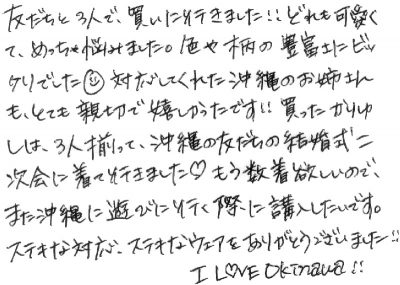 友だちと3人で、買いに行きました!!どれも可愛く
て、めっちゃ悩みました。色や柄の豊富さにビッ
クリでした☺対応してくれた沖縄のお姉さん
も、とても親切で嬉しかったです!!買ったかりゆ
しは、3人揃って、沖縄の友だちの結婚式二
次会に着て行きました♡もう数着欲しいので、
また沖縄に遊びに行く際に購入したいです。
ステキな対応、ステキなウェアをありがとうございました!!
I L♡VE Okinawa!!